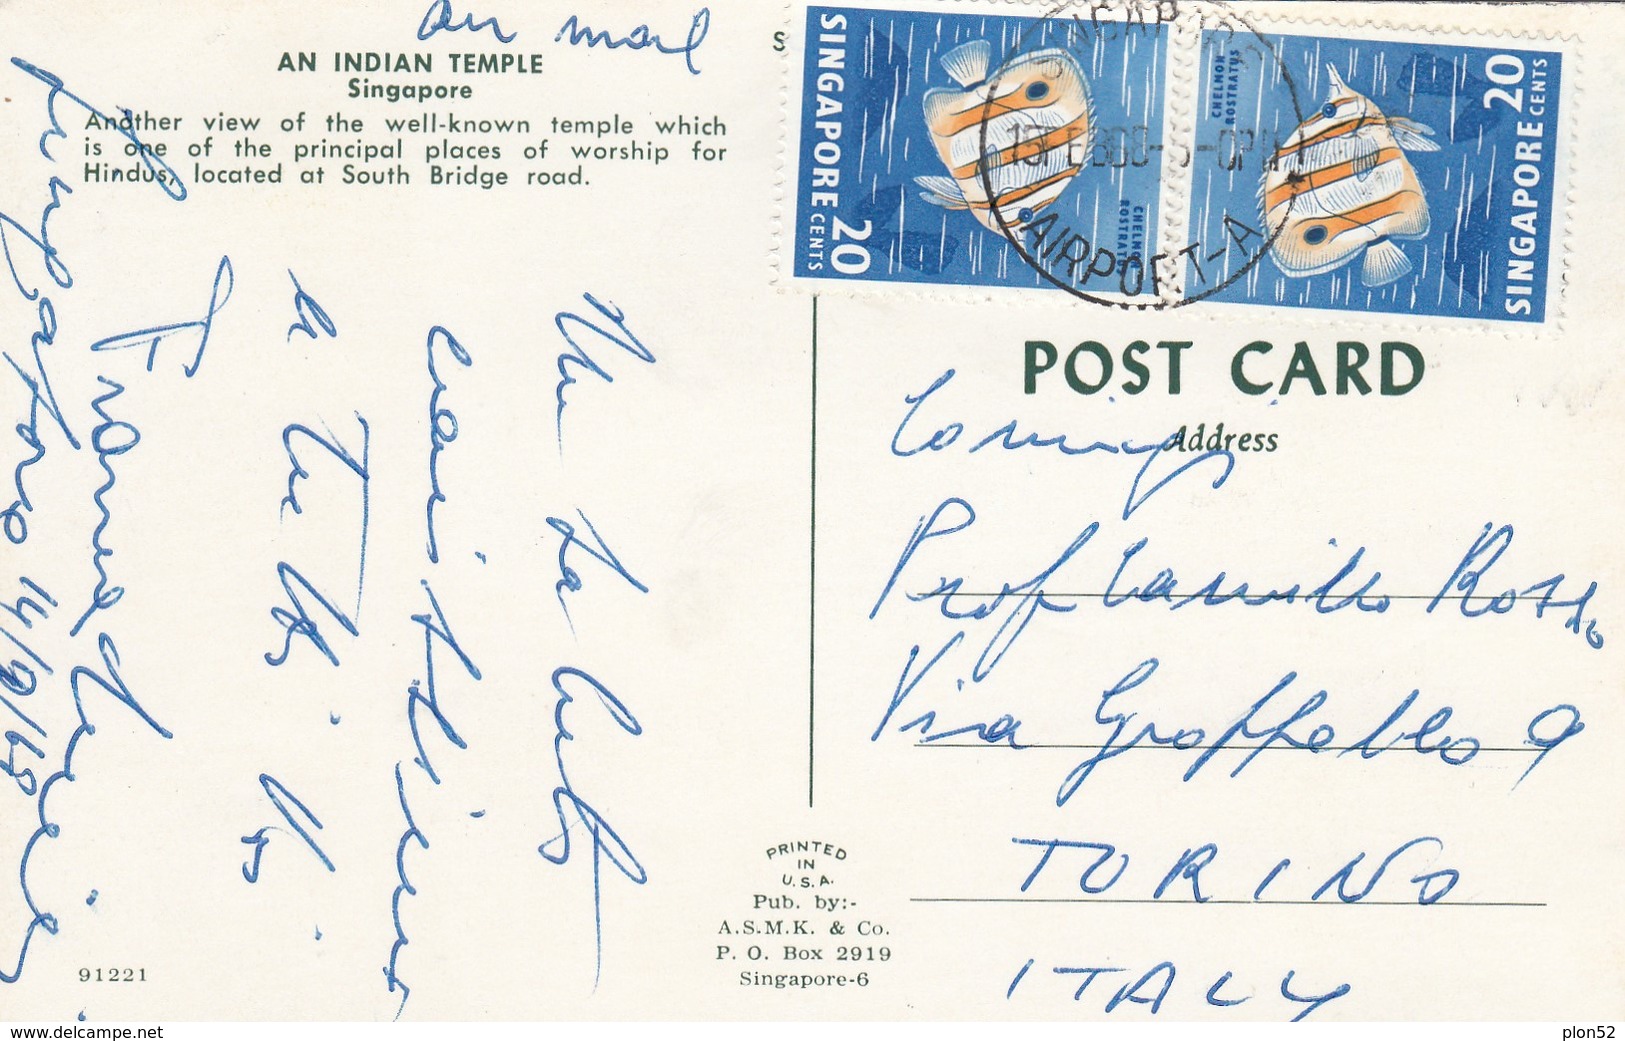 air mail
AN INDIAN TEMPLE
Singapore
Another view of the well-known temple which
is one of the principal places of worship for
Hindus, located at South Bridge road.
S
SINGAPORE
20 CENTS
CHELMON
ROSTRATUS
SINGAPORE
20 CENTS
CHELMON
ROSTRATUS
SINGAPORE
AIRPORT-A
POST CARD
Address
Prof Camillo Rosso
Via Groppello 9
TORINO
ITALY
Singapore 14/2/68
a Tutti Voi
PRINTED
IN
U.S.A.
Pub. by:-
A.S.M.K. & Co.
P. O. Box 2919
Singapore-6
91221
www.delcampe.net
plon52